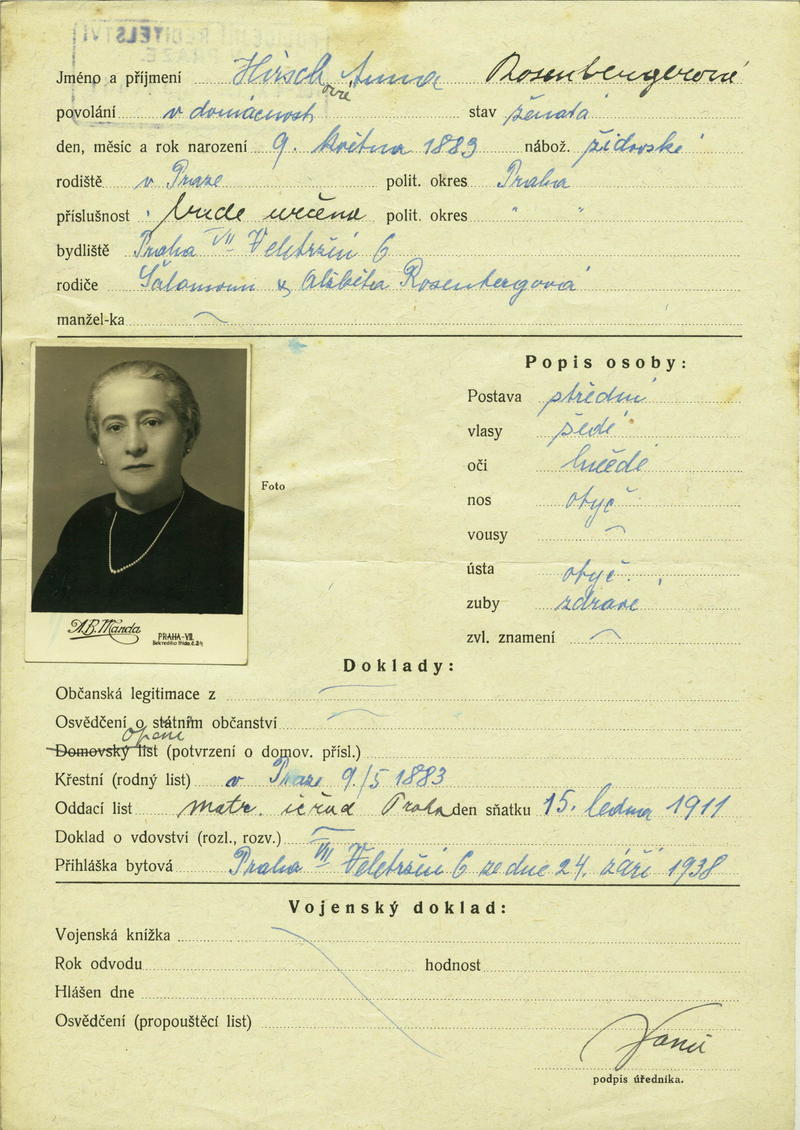 ŘEDITELSTVÍ
V PRAZE
Jméno a příjmení Hirschová Anna Rosenbergerové
povolání v domácnosti stav ženatá
den, měsíc a rok narození 9. května 1883 nábož. židovské
rodiště v Praze polit. okres Praha
příslušnost bude určena polit. okres " "
bydliště Praha VII Veletržní 6
rodiče Šalamoun & Alžběta Rosenbergová
manžel-ka
Popis osoby:
Postava střední
vlasy šedé
oči hnědé
Foto
nos obyč
vousy
ústa obyč.
zuby zdravé
A.B. Manda
PRAHA-VII.
Belcrediho třída, č. 24
zvl. znamení
Doklady:
Občanská legitimace z
Osvědčení o státním občanství
Opení
Domovský list (potvrzení o domov. přísl.)
Křestní (rodný list) v Praze 9./5 1883
Oddací list matr. úřad Praha den sňatku 15. ledna 1911
Doklad o vdovství (rozl., rozv.)
Přihláška bytová Praha VII Veletržní 6 ze dne 24. září 1938
Vojenský doklad:
Vojenská knížka
Rok odvodu hodnost
Hlášen dne
Osvědčení (propouštěcí list)
podpis úředníka.